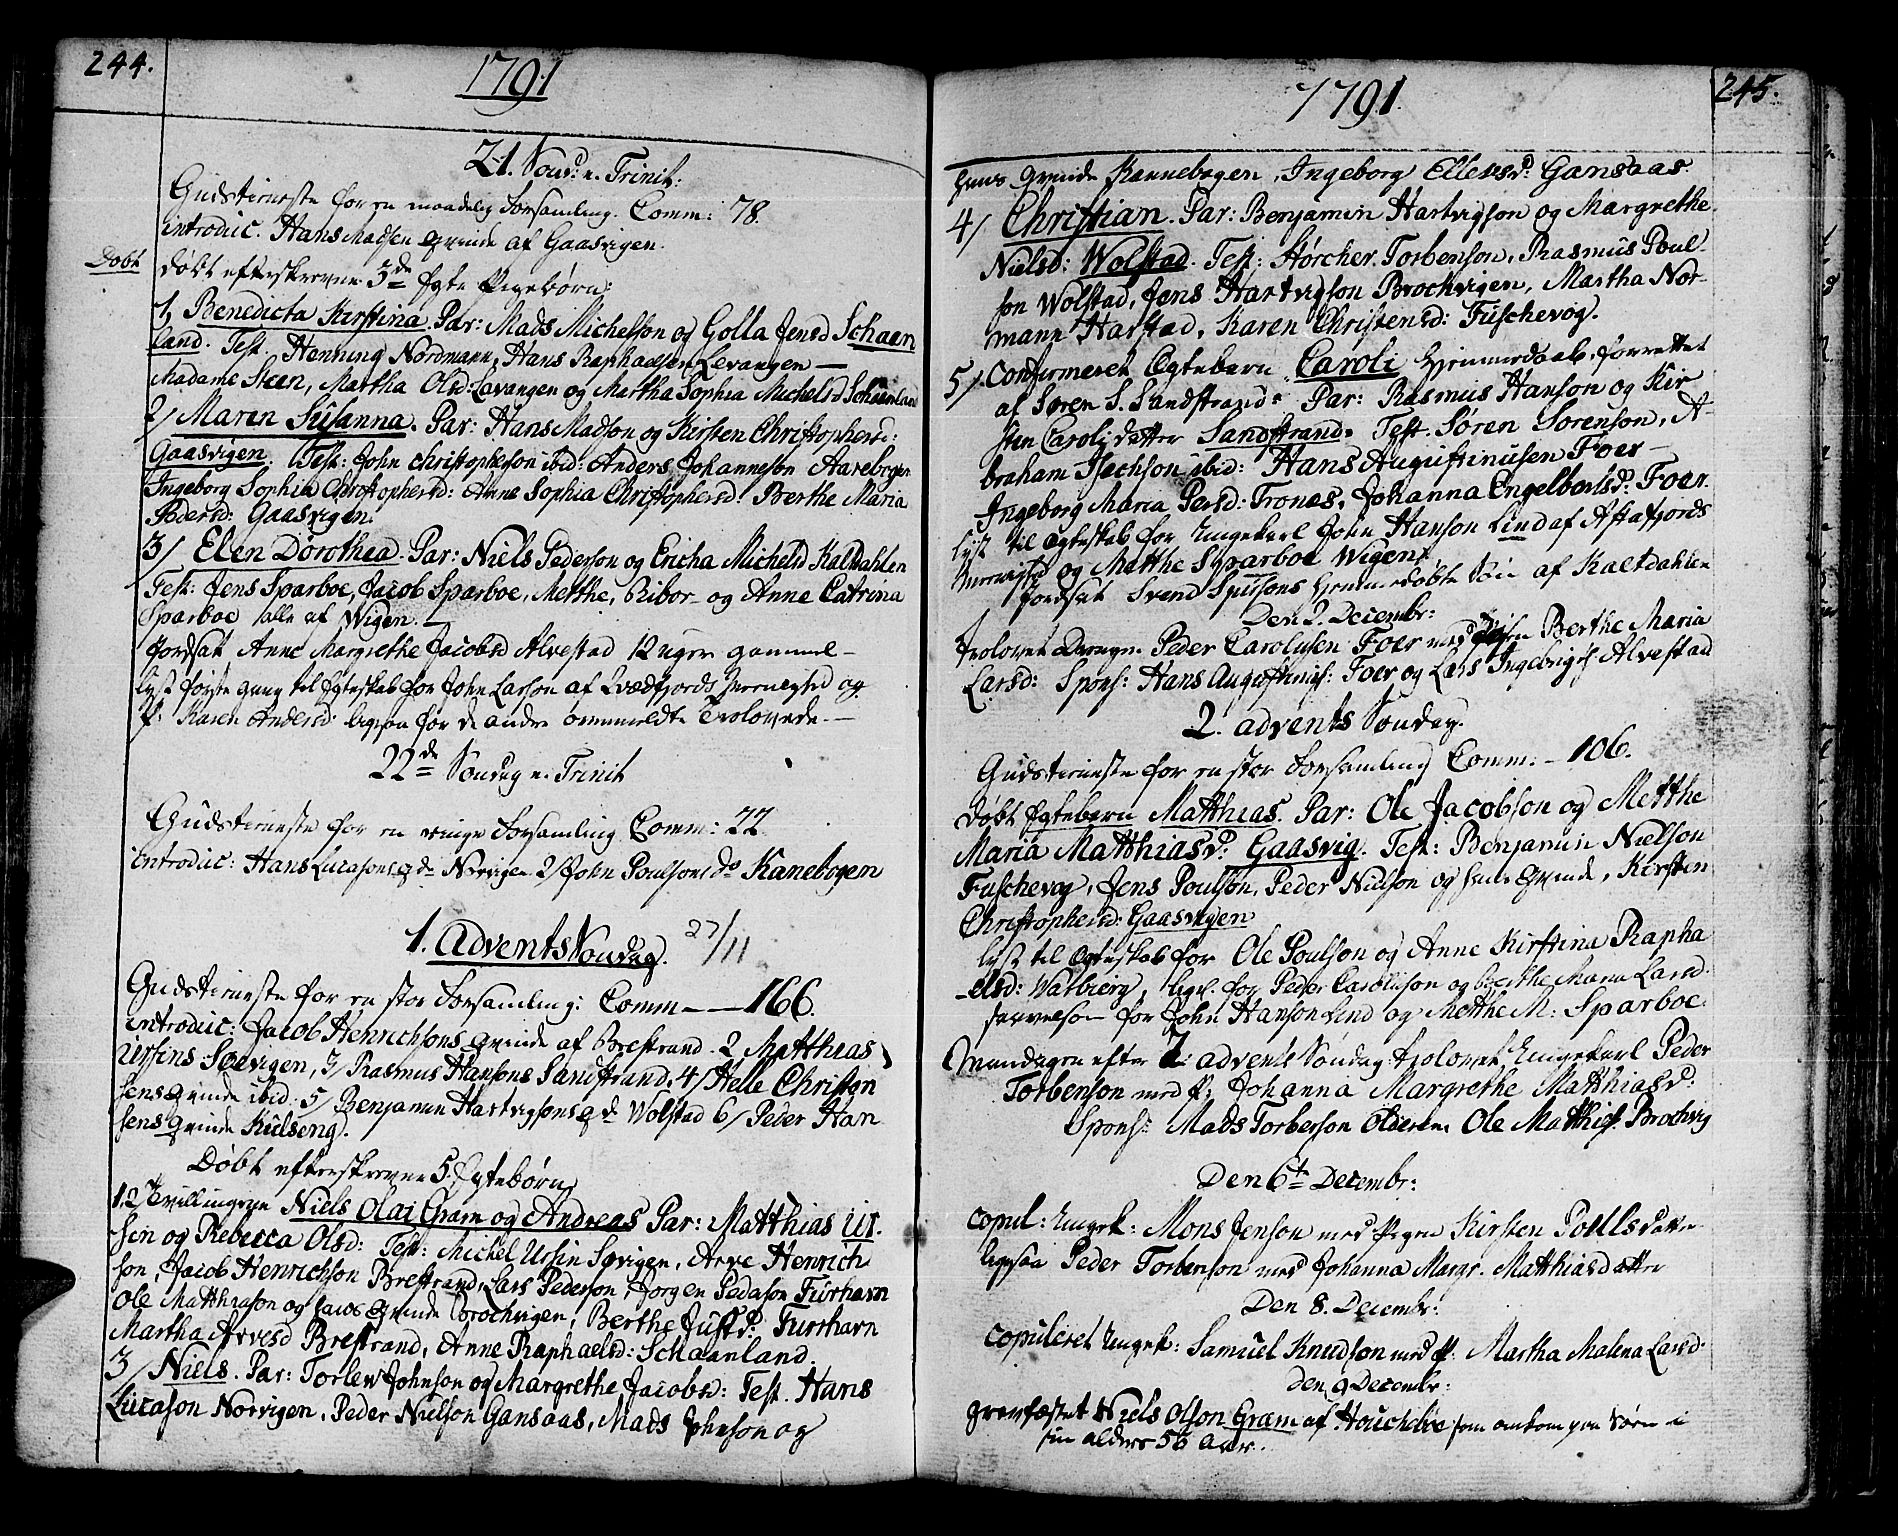 244.
1791
21. Sond: e. Trinit:
Gudstieneste for en maadelig Forsamling. Comm: 78.
introduc. Hans Madsen qvinde af Gaasvigen.
Døbt
døbt efterskrevne 3de Ægte Pigebørn:
1, Benedicta Kirstina. Par: Mads Michelson og Golla Jensd Schaan
land. Test. Henning Nordmann, Hans Raphaelsen Levangen —
Madame Steen, Martha Olsd Lavangen og Martha Sophia Michelsd Schaanland
2/ Maren Susanna. Par: Hans Madson og Kirsten Christophersd:
Gaasvigen. Test: John Christopherson ibid: Anders Johanneson Aarebogen
Ingeborg Sophia Christophersd: Anne Sophia Christophersd: Berthe Maria
Pedersd: Gaasvigen.
3/ Elen Dorothea. Par: Niels Pederson og Ericha Michelsd Kaldahlen
Test: Jens Sparboe, Jacob Sparboe, Metthe, Ribor- og Anne Catrina
Sparboe alle af Wigen.
Jordsat Anne Margrethe Jacobsd Alvestad 12 uger gammel —
lyst første gang til Ægteskab for John Larson af Qvædfjords Menighed og
P: Karen Andersd. ligesaa for de andre ommeldte Trolovede. —
22de Søndag e. Trinit
Gudstieneste for en ringe Forsamling Comm: 22.
introduc: Hans Lucasons qvde Norvigen 2/ John Poulsons do Kanebogen
1. Advents Sondag. 27/11
Gudstieneste for en stor Forsamling: Comm — — 166.
introduc: Jacob Henrichsons qvinde af Brestrand. 2 Matthias
Ursins Sørvigen, 3/ Rasmus Hansons Sandstrand. 4/ Helle Christen
sens qvinde ibid. 5/ Benjamin Hartvigsons qvde Wolstad 6/ Peder Han
sens qvinde Kulseng.
Døbt efterskrevne 5 Ægtebørn
1.2 Tvillingerne Niels Olai Gram og Andreas Par: Matthias Ur-
sin og Rebecca Olsd: Test: Michel Ursin Sørvigen, Arve Henrich
son, Jacob Henrichson Brestrand, Lars Pederson, Jorgen Pederson Furrhavn
Ole Matthiason og hans qvinde Brochvigen, Berthe Justd: Furrhavn
Martha Arvesd Brestrand, Anne Raphaelsd: Schaanland.
3/ Niels. Par: Torlew Johnson og Margrethe Jacobsd: Test. Hans
Lucason Norvigen, Peder Nielson Gansaas, Mads Johnson og
245.
1791.
hans qvinde Kannebogen, Ingeborg Ellevsd. Gansaas.
4/ Christian. Par: Benjamin Hartvigson og Margrethe
Nielsd: Wolstad. Test: Størcher Torbenson, Rasmus Poul
son Wolstad, Jens Hartvigson Brochvigen, Martha Nor-
mann Harstad, Karen Christensd: Fuschevog.
5/ Confirmeret Ægtebarn Caroli Hjemmedaab, forrettet
af Søren S. Sandstrand. Par: Rasmus Hanson og Kir
sten Carolidatter Sandstrand. Test. Søren Sorenson, A-
braham Isachson ibid: Hans Augustinusen Foer —
Ingeborg Maria Persd: Trones, Johanna Engelbertsd: Foer.
lyst til Ægteskab for Ungekarl John Hanson Lind af Astafjords
Menighed og Metthe Sparboe Wigen.
Jordsat Svend Syversons Hjemmedøbte Søn af Kaltdahlen
Den 2. Decembr:
Trolovet Drengen Peder Carolusen Foer med Pigen Berthe Maria
Larsd: Spons: Hans Augustinus: Foer og Lars Ingebrigts: Alvestad
2. advents Søndag.
Gudstieneste for en stor Forsamling Comm: — 106.
døbt Ægtebarn Matthias. Par: Ole Jacobson og Metthe
Maria Matthiasd. Gaasvig. Test: Benjamin Nielson
Fuschevog, Jens Poulson, Peder Nielson og hans qvinde, Kirsten
Christophersd: Gaasvigen
lyst til Ægteskab for Ole Poulson og Anne Kirstina Rapha
-elsd: Watbierg, liges. for Peder Carolison og Berthe Maria Larsd.
for John Hanson Lind og Metthe M: Sparboe.
Mandagen efter 2. advents Søndag trolovet Ungekarl Peder
Torbenson med P. Johanna Margrethe Matthiasd:
Spons: Mads Torberson Olderen. Ole Matthis: Brochvig
Den 6te Decembr:
copul: Ungek: Mons Jenson med Pigen Kirsten Poulsdatter
ligesaa Peder Torbenson med Johanna Margr. Matthiasdatter
Den 8. Decembr:
copuleret Ungek: Samuel Knudson med P: Martha Malena Larsd.
Den 9 Decembr:
gravfæstet Niels Olson Gram af Houchebøe som omkom paa Søen i
sin alders 56 Aar.